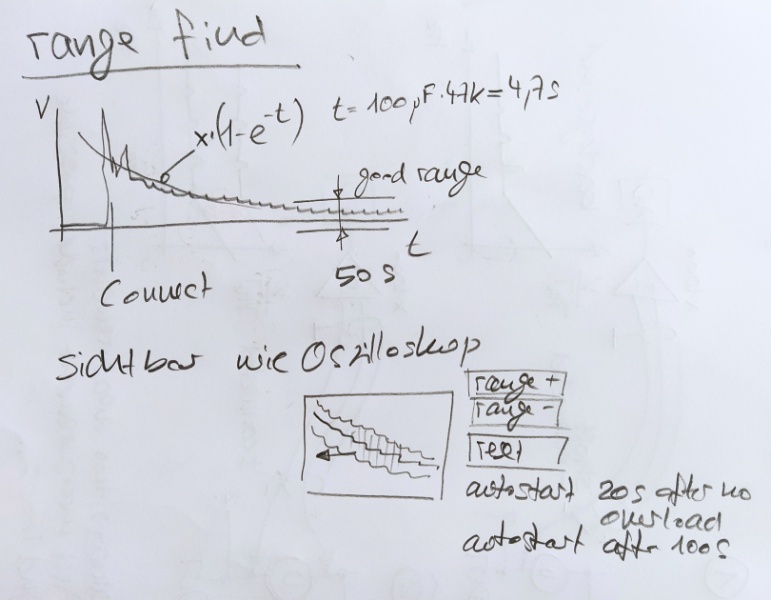 range find
V
x·(1-e^-t)
t = 100µF·47k = 4,7s
good range
t
50 s
Connect
sichtbar wie Oszilloskop
range +
range -
autostart 20s after no
overload
autostart after 100s